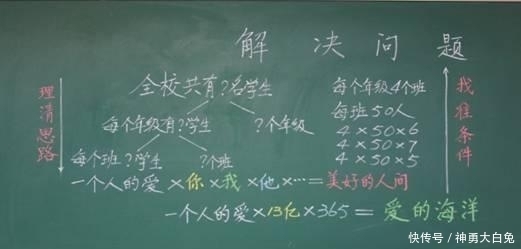 解决问题
理清思路
全校共有?名学生
每个年级有?学生 ?个年级
每个班?学生 ?个班
每个年级4个班
每班50人
4×50×6
4×50×7
4×50×5
找准条件
一个人的爱×你×我×他×…=美好的人间
一个人的爱×13亿×365=爱的海洋
快传号/神勇大白兔